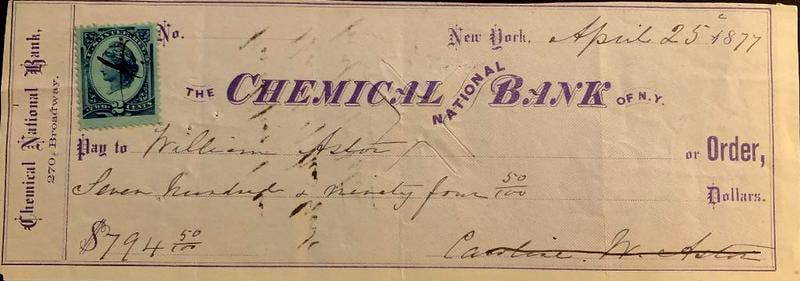 Chemical National Bank,
270, Broadway.
U.S. INTER. REV.
TWO 2 CENTS
No.
New York, April 25th 1877
THE CHEMICAL NATIONAL BANK OF N.Y.
Pay to William Astor or Order,
Seven hundred & ninety four 50/100 Dollars.
$794 50/100
Caroline W. Astor